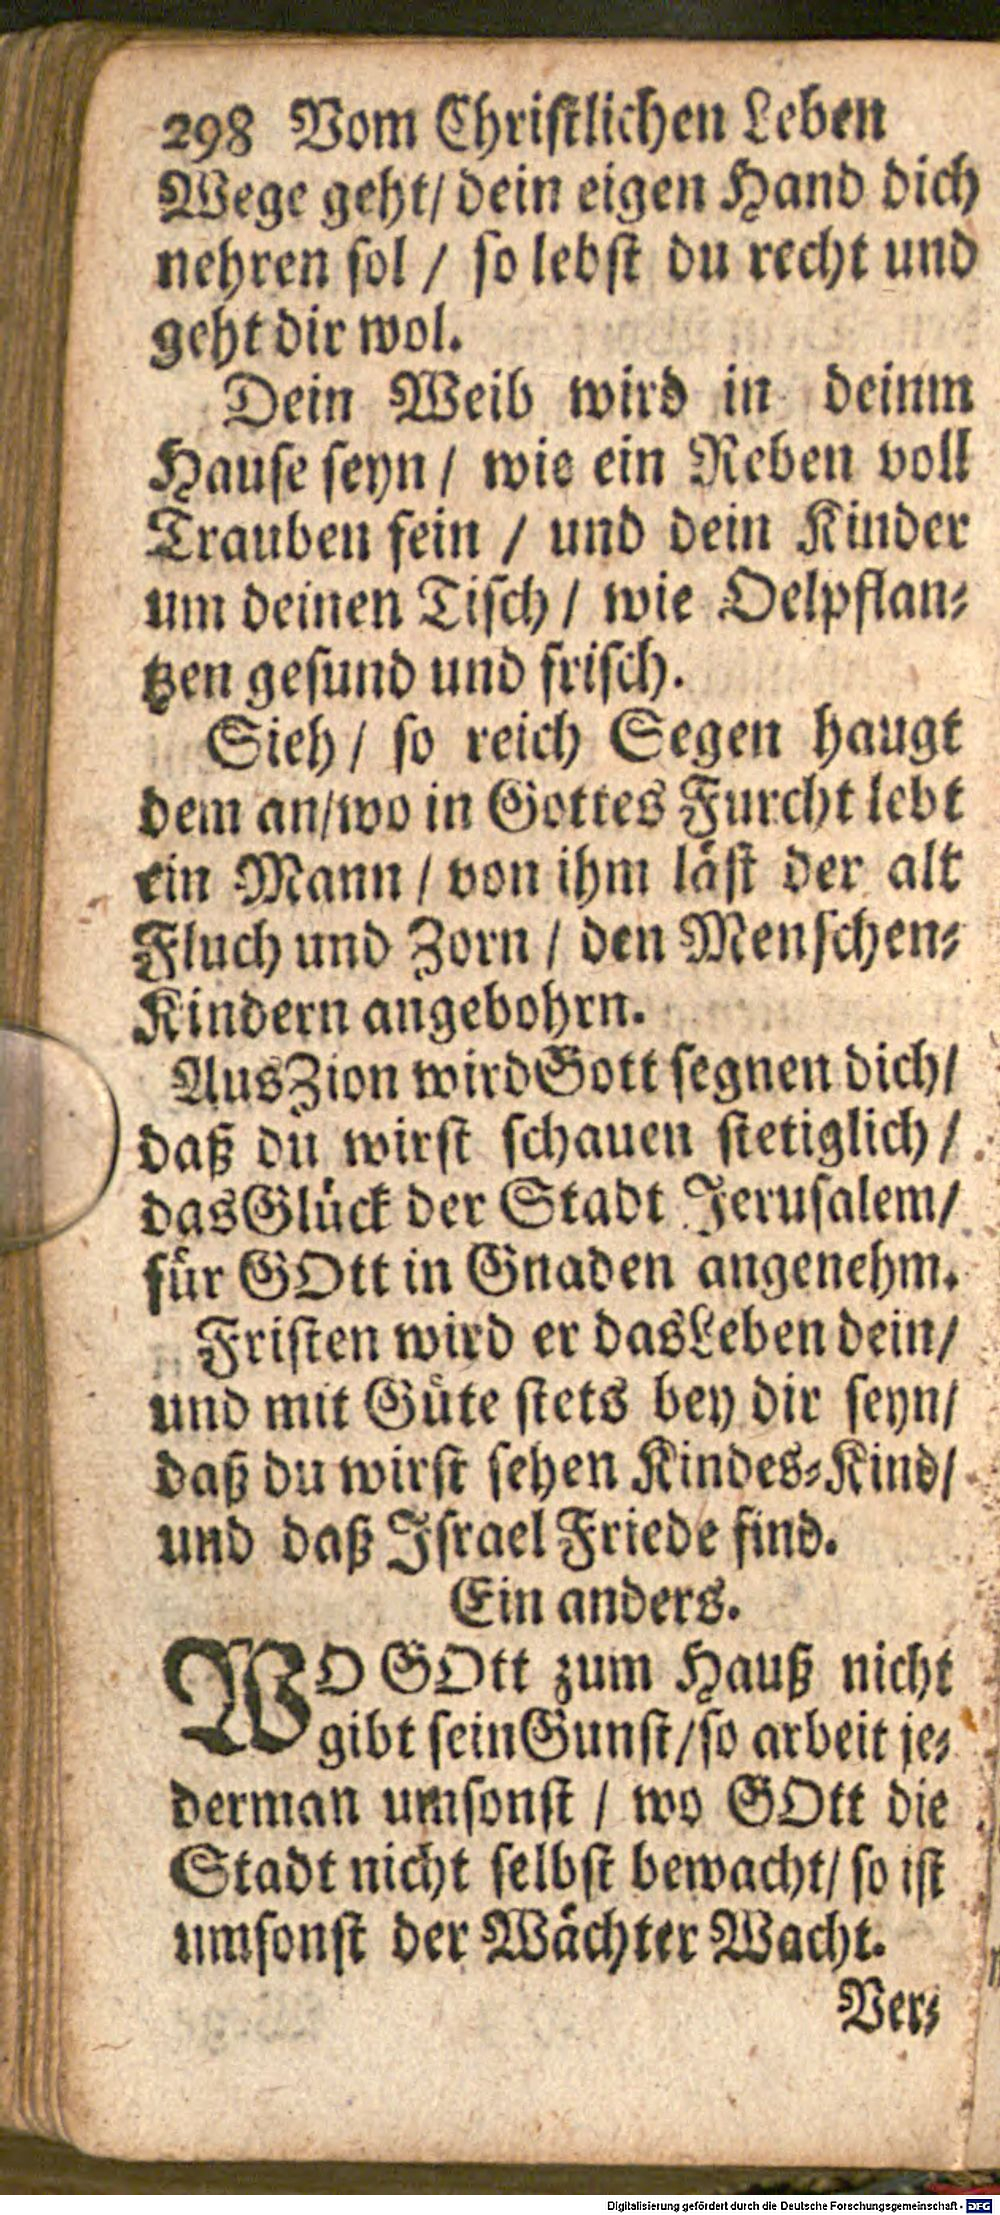 298 Vom Christlichen Leben
Wege geht/ dein eigen Hand dich
nehren sol / so lebst du recht und
geht dir wol.
Dein Weib wird in deinm
Hause seyn / wie ein Reben voll
Trauben fein / und dein Kinder
um deinen Tisch / wie Oelpflan-
tzen gesund und frisch.
Sieh / so reich Segen haugt
dem an/wo in Gottes Furcht lebt
ein Mann / von ihm läst der alt
Fluch und Zorn / den Menschen-
Kindern angebohrn.
Aus Zion wird Gott segnen dich/
daß du wirst schauen stetiglich /
das Glück der Stadt Jerusalem/
für GOtt in Gnaden angenehm.
Fristen wird er das Leben dein/
und mit Güte stets bey dir seyn/
daß du wirst sehen Kindes-Kind/
und daß Israel Friede find.
Ein anders.
WO GOtt zum Hauß nicht
gibt sein Gunst/so arbeit je-
derman umsonst / wo GOtt die
Stadt nicht selbst bewacht/ so ist
umsonst der Wächter Wacht.
Ver-
Digitalisierung gefördert durch die Deutsche Forschungsgemeinschaft - DFG